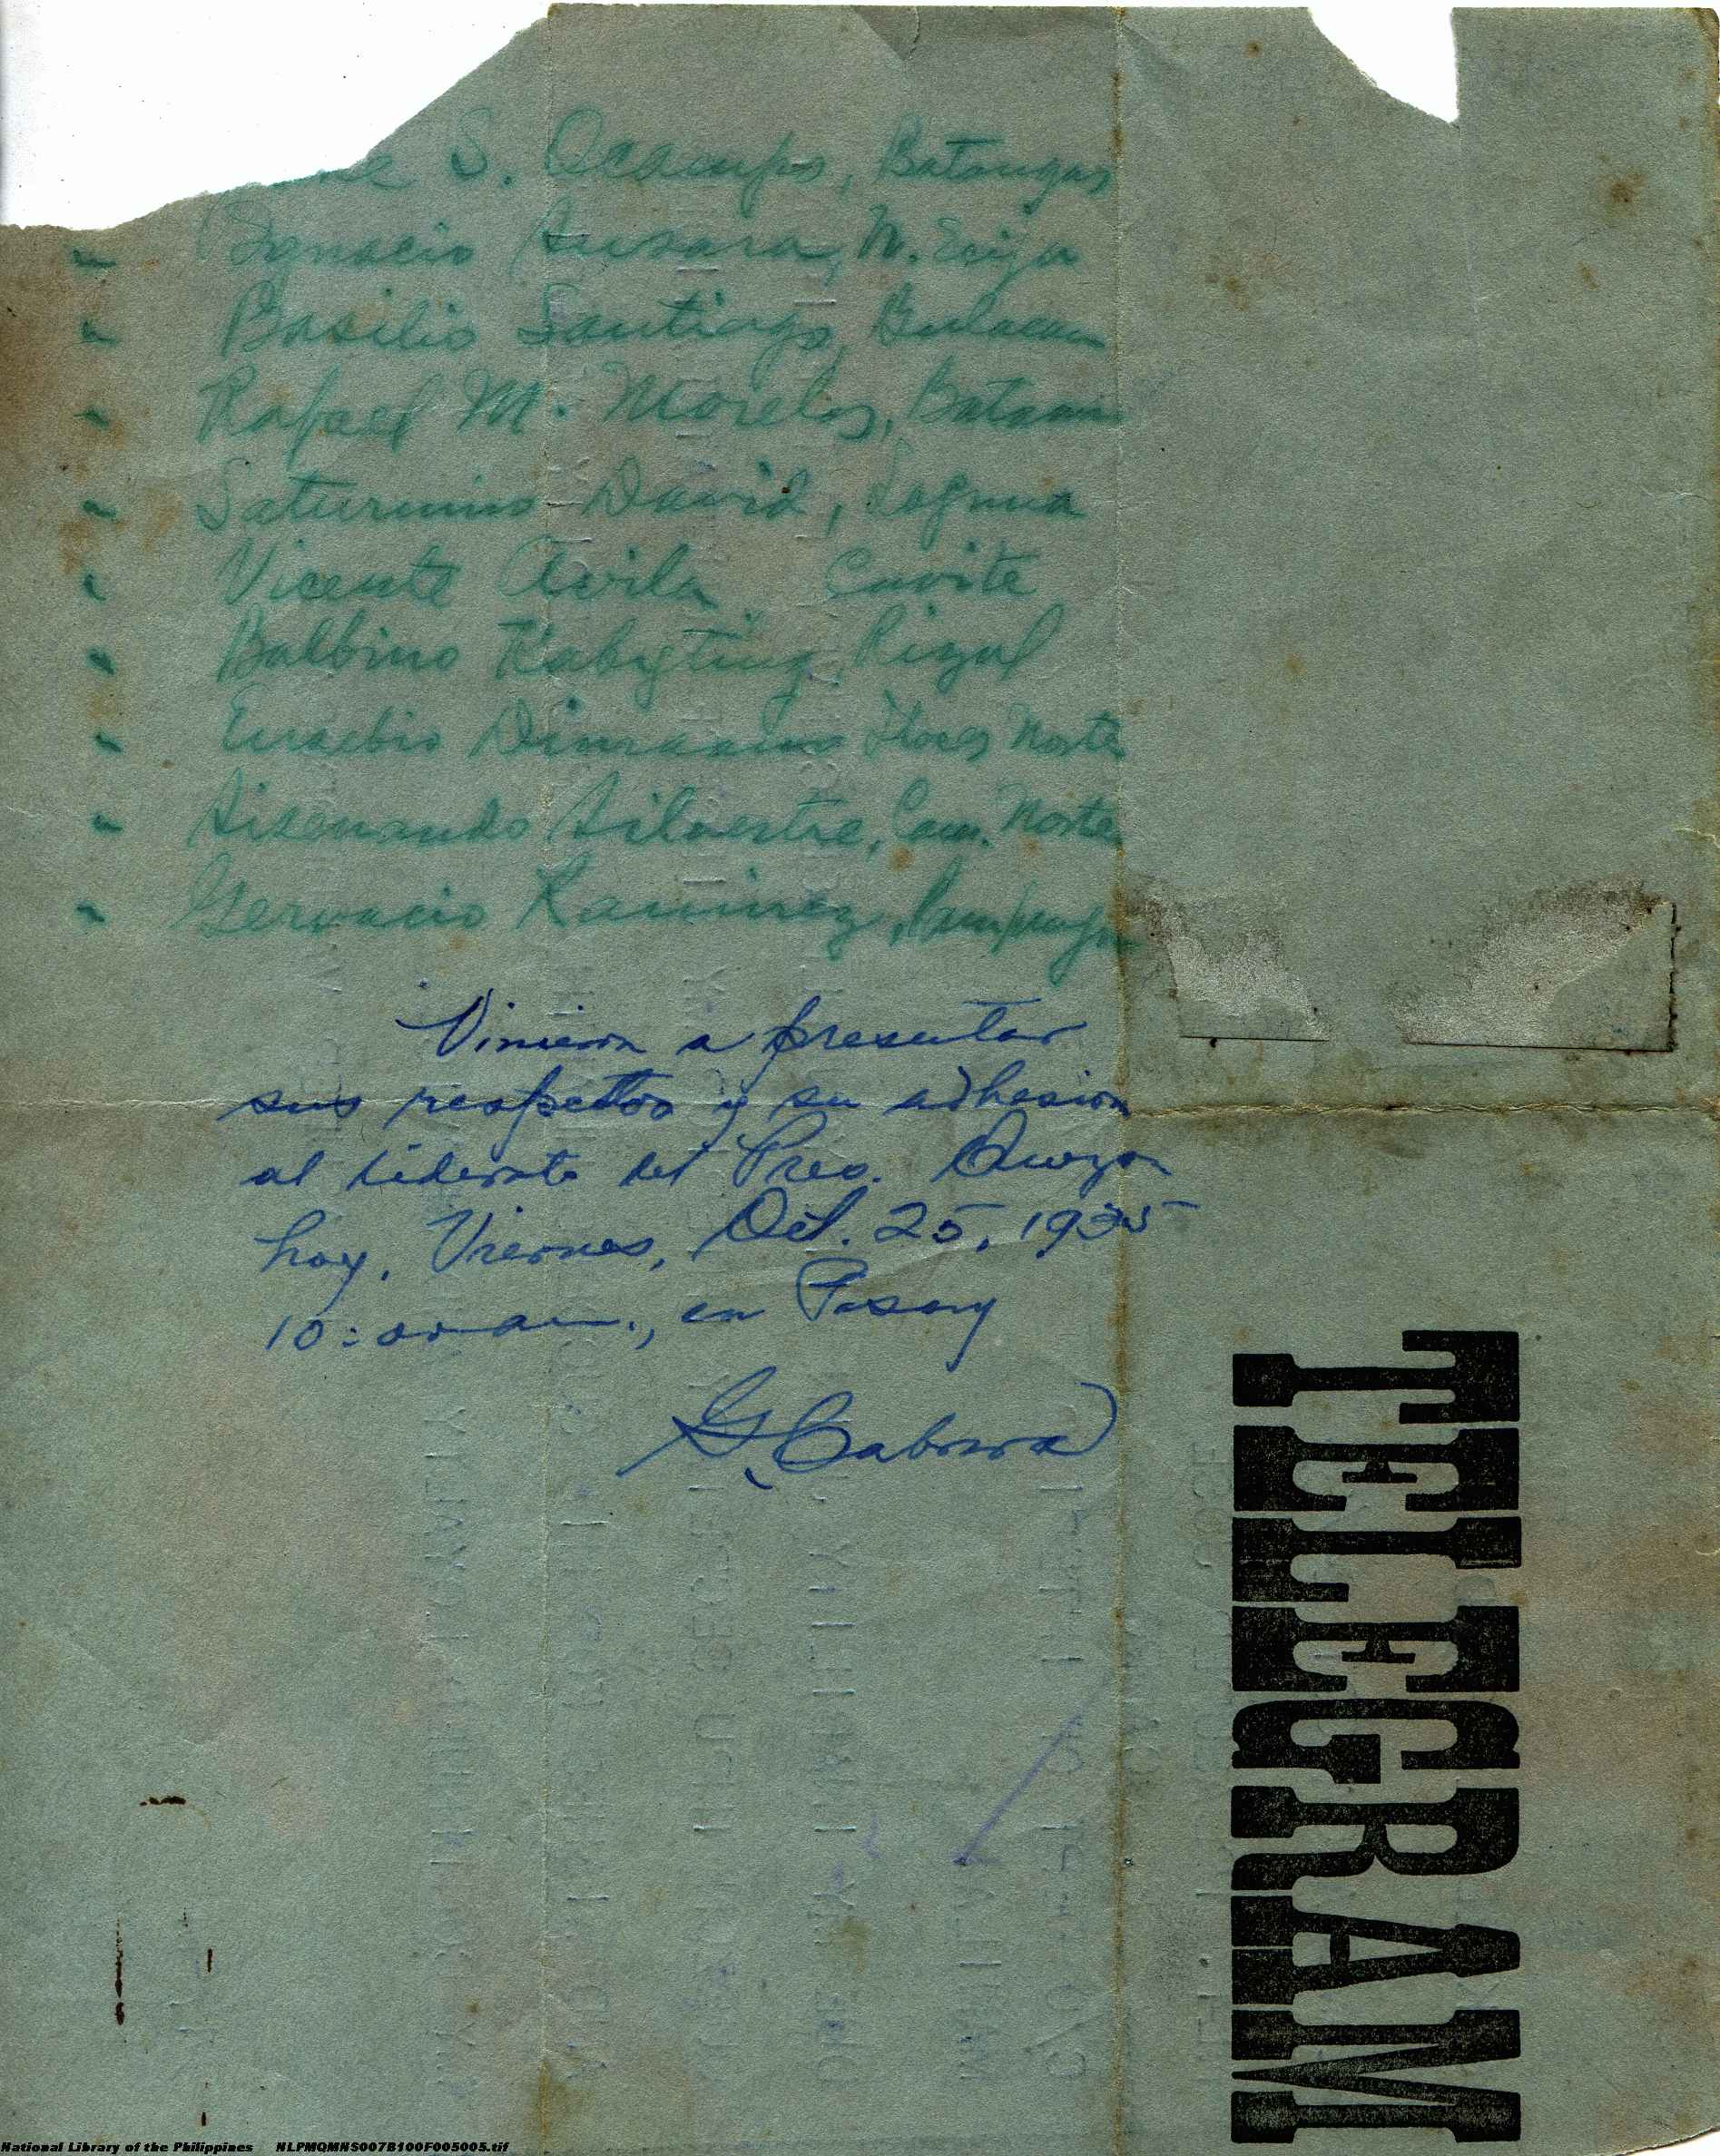 S. Ocampo, Batangas
" Ignacio Susara, N. Ecija
" Basilio Santiago, Bulacan
" Rafael M. Morelos, Bataan
" Saturnino David, Laguna
" Vicente Avila, Cavite
" Balbino Kabigting, Rizal
" Eusebio Ilocos Norte
" Sisenando Silvestre, Cam. Norte
" Gervacio Ramirez, Pampanga
Vinieron a presentar
sus respettos y su adhesion
al liderato del Pres. Quezon
hoy, Viernes, Oct. 25, 1935
10:00 a.m., en Pasay
G. Cabrera
TELEGRAM
National Library of the Philippines NLPMQMNS007B100F005005.tif